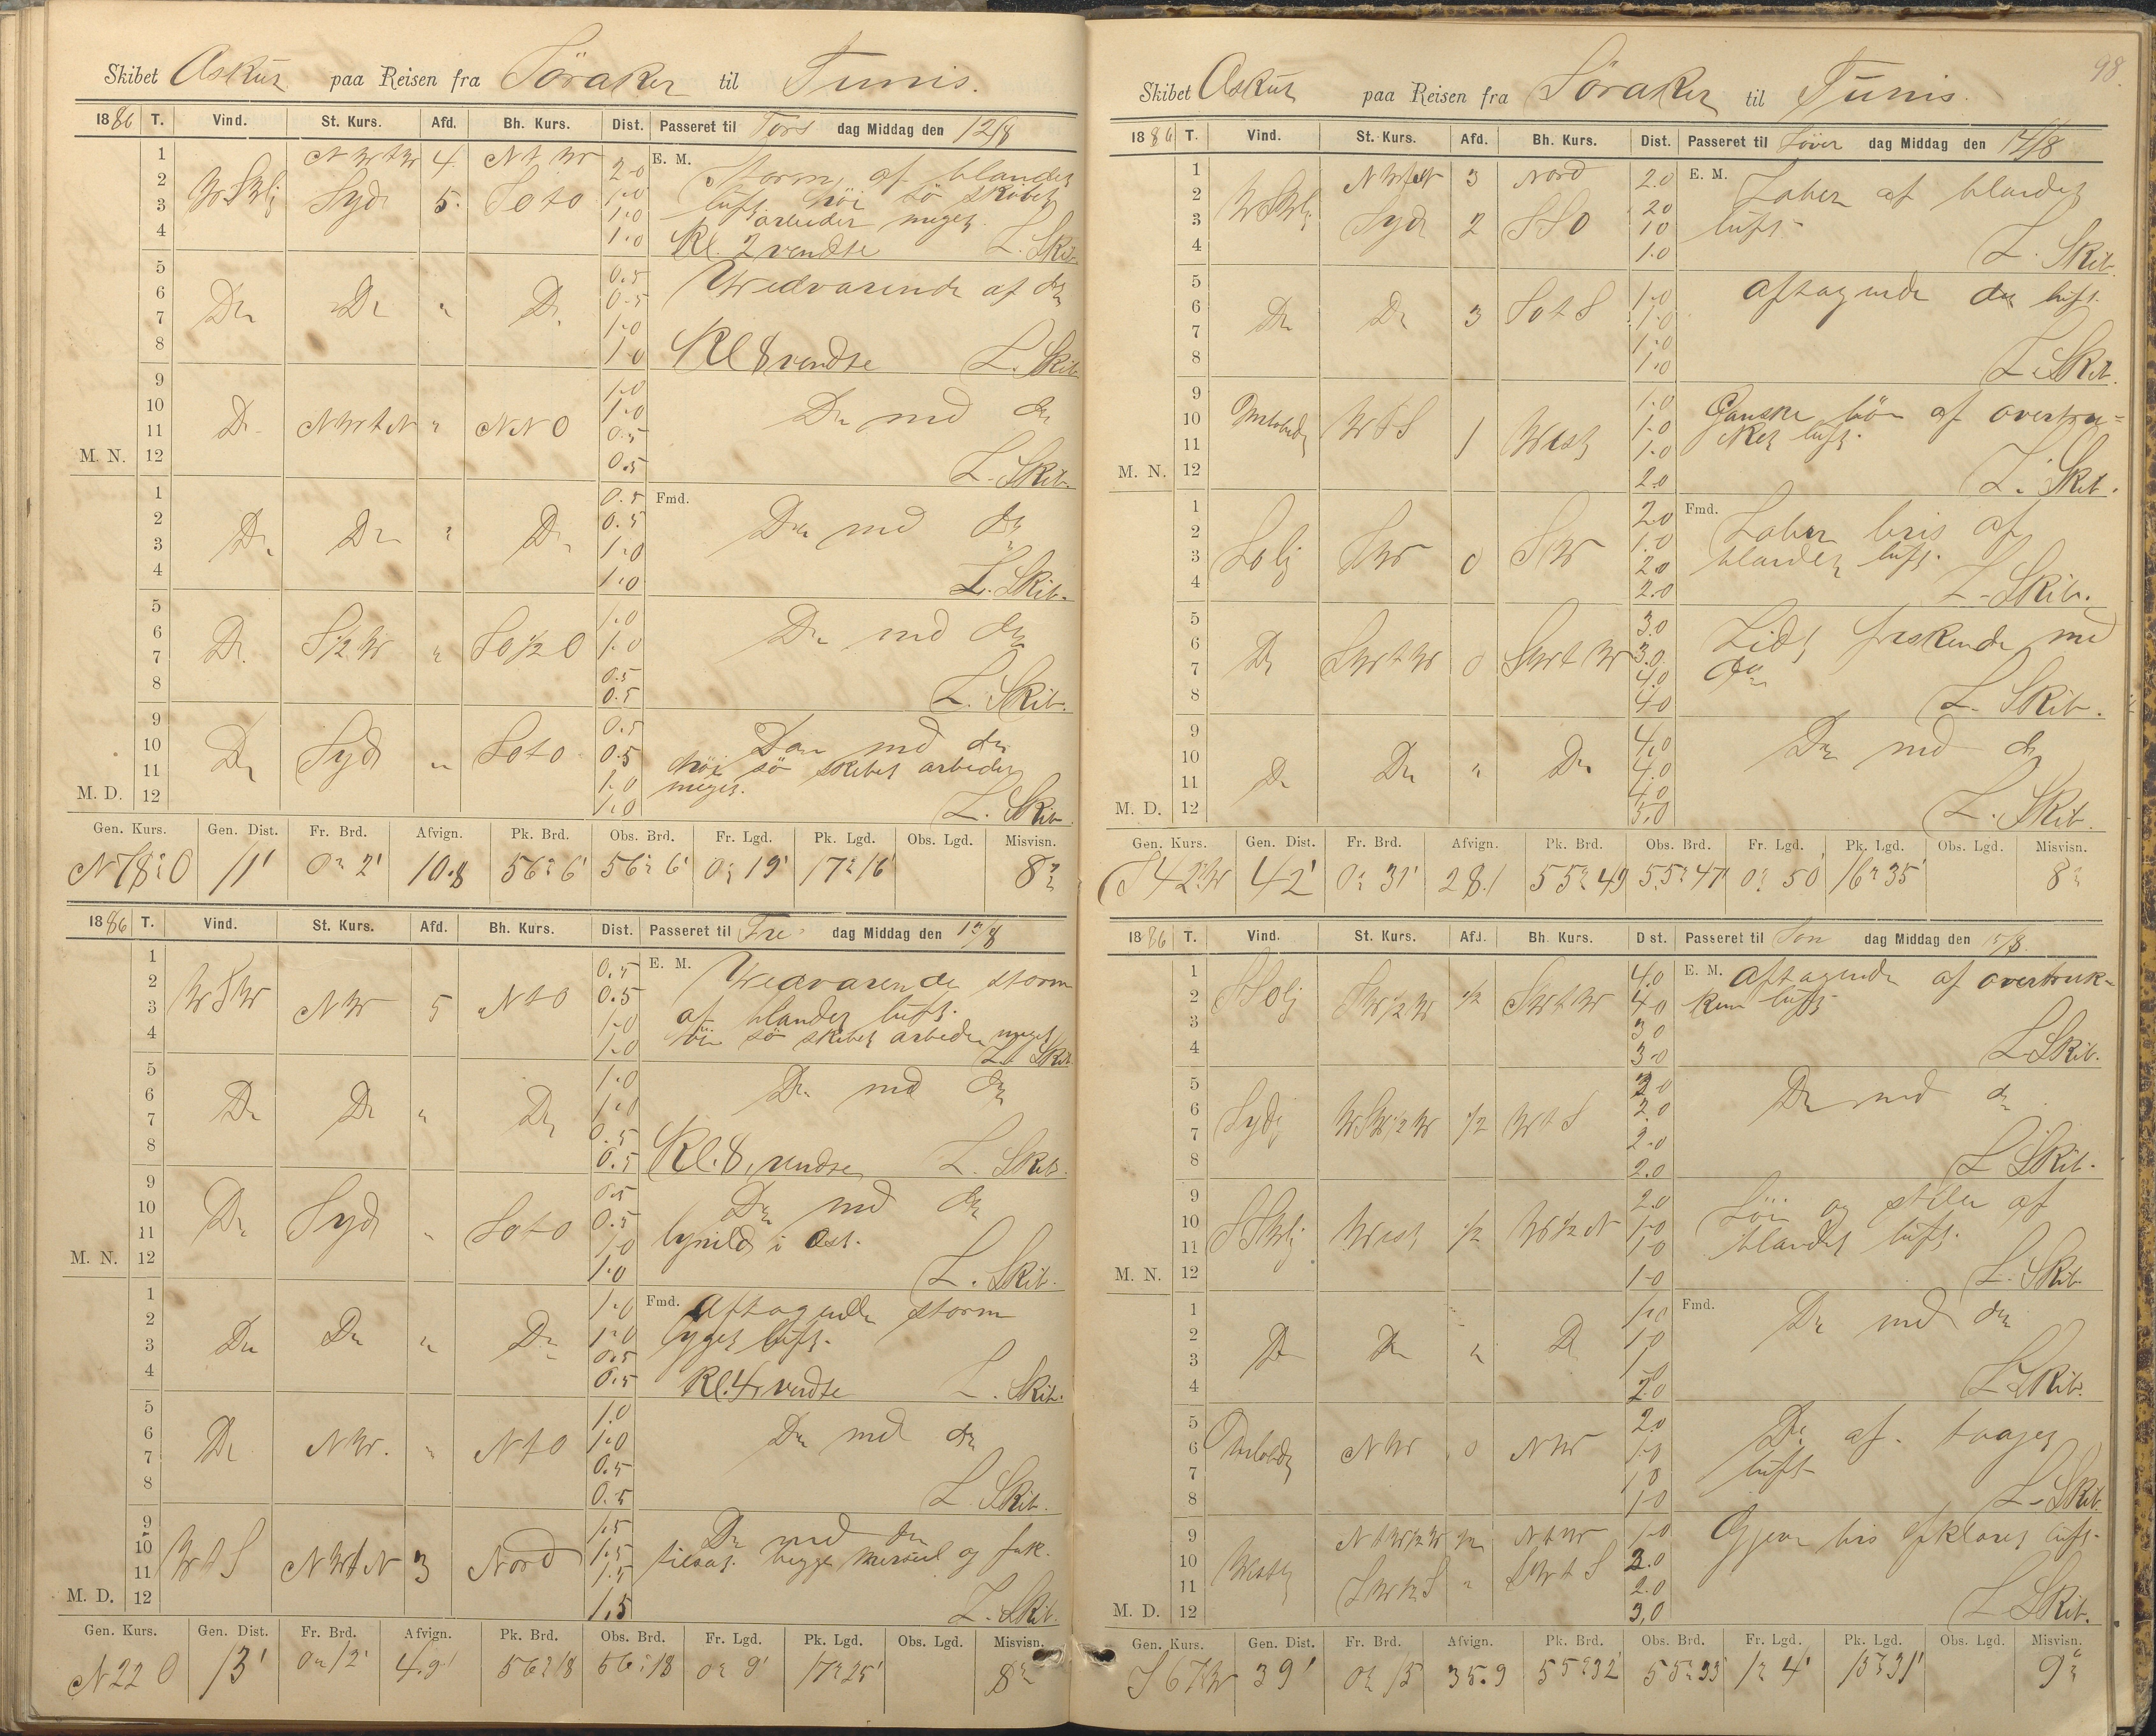 Skibet Askur paa Reisen fra Söraker til Tunis.
1886 T. Vind. St. Kurs. Afd. Bh. Kurs. Dist. Passeret til Tors dag Middag den 12/8
1 NWtW 4 NtW 2.0 E. M. Storm af blandet
2 WSWlj Syd 5 SOtO 1.0 luft höi sö skibet
3 1.0 arbeider meget
4 1.0 Kl. 2 vendte L. Skib.
5 0.5 Vedvarende af do
6 Do Do " Do 0.5
7 1.0
8 1.0 Kl 8 vendte L. Skib
9 1.0
10 Do NWtN " NNO 1.0 Do med do
11 0.5
M. N. 12 0.5 L. Skib.
1 0.5 Fmd.
2 Do Do " Do 0.5 Do med do
3 1.0
4 1.0 L. Skib.
5 1.0
6 Do S½W " SO½O 1.0 Do med do
7 0.5
8 0.5 L. Skib.
9 0.5
10 Do Syd " SOtO 0.5 Do med do
11 1.0 höi sö skibet arbeider
M. D. 12 1.0 meget. L. Skib
Gen. Kurs. Gen. Dist. Fr. Brd. Afvign. Pk. Brd. Obs. Brd. Fr. Lgd. Pk. Lgd. Obs. Lgd. Misvisn.
N78°O 11' 0° 2' 10.8 56° 6' 56° 6' 0° 19' 17° 16' 8°
1886 T. Vind. St. Kurs. Afd. Bh. Kurs. Dist. Passeret til Fre dag Middag den 13/8
1 0.5 E. M. Vedvarende storm
2 WSW NW 5 NtO 0.5 af blandet luft.
3 1.0 höi sö skibet arbeider meget
4 1.0 L. Skib.
5 1.0 Do med do
6 Do Do " Do 1.0
7 0.5
8 0.5 Kl. 8 vendte L. Skib.
9 0.5 Do med do
10 Do Syd " SOtO 0.5
11 1.0 lynild i Ost.
M. N. 12 1.0 L. Skib.
1 1.0 Fmd. Aftagende storm
2 Do Do " Do 1.0 bygget luft.
3 0.5
4 0.5 Kl. 4 vendte L. Skib.
5 1.0
6 Do NW. " NtO 1.0 Do med do
7 0.5
8 0.5 L. Skib.
9 1.5
10 WtS NWtN 3 Nord 1.5 Do med do
11 1.5 tilsat begge mersseil og fok.
M. D. 12 1.5 L. Skib.
Gen. Kurs. Gen. Dist. Fr. Brd. Afvign. Pk. Brd. Obs. Brd. Fr. Lgd. Pk. Lgd. Obs. Lgd. Misvisn.
N22 O 13' 0° 12' 4.9' 56° 18 56° 18 0° 9' 17° 25' 8°
98
Skibet Askur paa Reisen fra Söraker til Tunis.
1886 T. Vind. St. Kurs. Afd. Bh. Kurs. Dist. Passeret til Löver dag Middag den 14/8
1 NWtN 3 Nord 2.0 E. M. Laber af blandet
2 WSWlj 2.0
3 Syd 2 SSO 1.0 luft
4 1.0 L. Skib.
5 1.0 Aftagende do luft.
6 Do Do 3 SOtS 1.0
7 1.0
8 1.0 L. Skib.
9 1.0 Ganske löi af overtru=
10 Omlobende WtS 1 West 1.0 cket luft.
11 1.0
M. N. 12 2.0 L. Skib.
1 2.0 Fmd. Laber bris af
2 SOlj SW 0 SW 1.0 blandet luft.
3 2.0
4 2.0 L. Skib.
5 3.0 Lidt friskende med
6 Do SWtW 0 SWtW 3.0 do
7 4.0
8 4.0 L. Skib.
9 4.0 Do med do
10 Do Do " Do 4.0
11 4.0
M. D. 12 5.0 L. Skib.
Gen. Kurs. Gen. Dist. Fr. Brd. Afvign. Pk. Brd. Obs. Brd. Fr. Lgd. Pk. Lgd. Obs. Lgd. Misvisn.
S42°W 42' 0° 31' 28.1 55° 49 55° 47' 0° 50' 16° 35' 8°
1886 T. Vind. St. Kurs. Afd. Bh. Kurs. Dist. Passeret til Son dag Middag den 15/8.
1 4.0 E. M. Aftagende af overtruk-
2 SSOlj SW½W ½ SWtW 4.0 ken luft
3 3.0
4 3.0 L. Skib.
5 2.0 Do med do
6 Sydj WSW½W ½ WtS 2.0
7 2.0
8 2.0 L. Skib.
9 2.0 Löi og stille af
10 SSWlj West ½ W½N 1.0 blandet luft.
11 1.0
M. N. 12 1.0 L. Skib
1 1.0 Fmd. Do med do
2 Do Do " Do 1.0
3 1
4 2.0 L. Skib.
5 2.0 Do af taaget
6 Omlobende NW 0 NW 1.0 luft
7 1.0
8 1.0 L. Skib.
9 NtW½W ½ NtW 1.0 Gjevn bris opklaret luft.
10 Westlj 2.0
11 SW½S " SWtS 2.0
M. D. 12 3.0 L. Skib.
Gen. Kurs. Gen. Dist. Fr. Brd. Afvign. Pk. Brd. Obs. Brd. Fr. Lgd. Pk. Lgd. Obs. Lgd. Misvisn.
S67W 39' 0° 15 35.9 55° 32' 55° 33' 1° 4' 15° 31' 9°